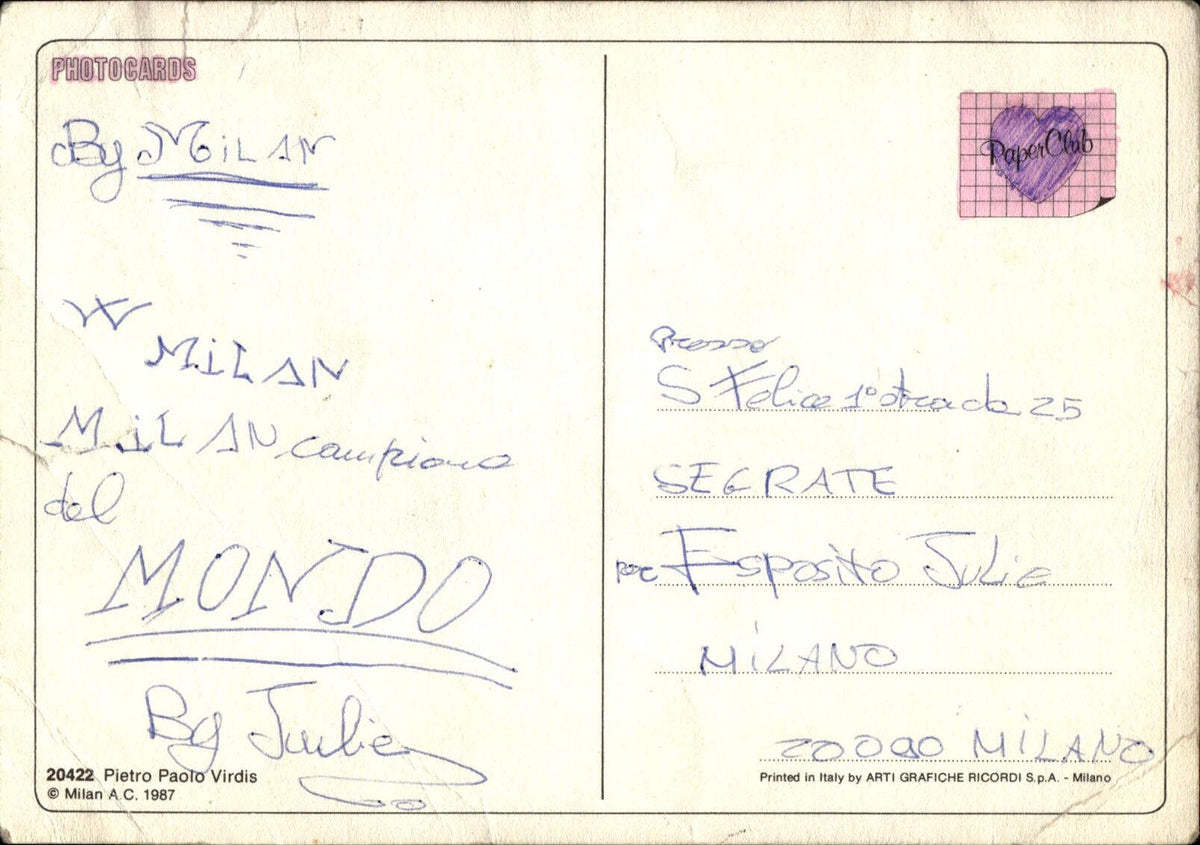 PHOTOCARDS
By MiLAN
W
MiLAN
MiLAN campione
del
MONDO
By Julie
20422 Pietro Paolo Virdis
© Milan A.C. 1987
PaperClub
Presso
S Felice 1° strada 25
SEGRATE
per Esposito Julie
MiLANO
20090 MiLANO
Printed in Italy by ARTI GRAFICHE RICORDI S.p.A. - Milano